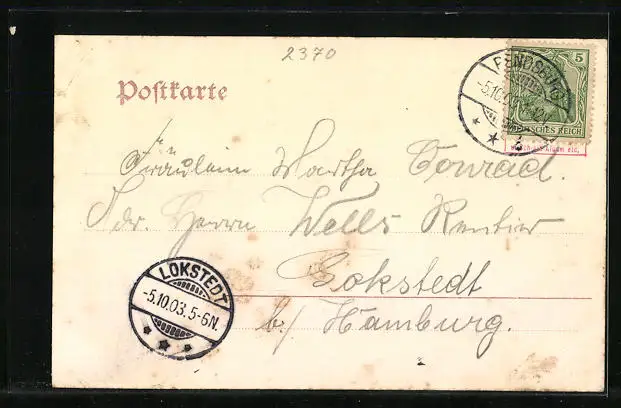 2370
Postkarte
RENDSBURG
5
-5.10.03.
DEUTSCHES REICH
Fräulein Martha Conrad.
Adr. Herrn Wells Rentier
Lokstedt
b/ Hamburg.
LOKSTEDT
-5.10.03.5-6N.